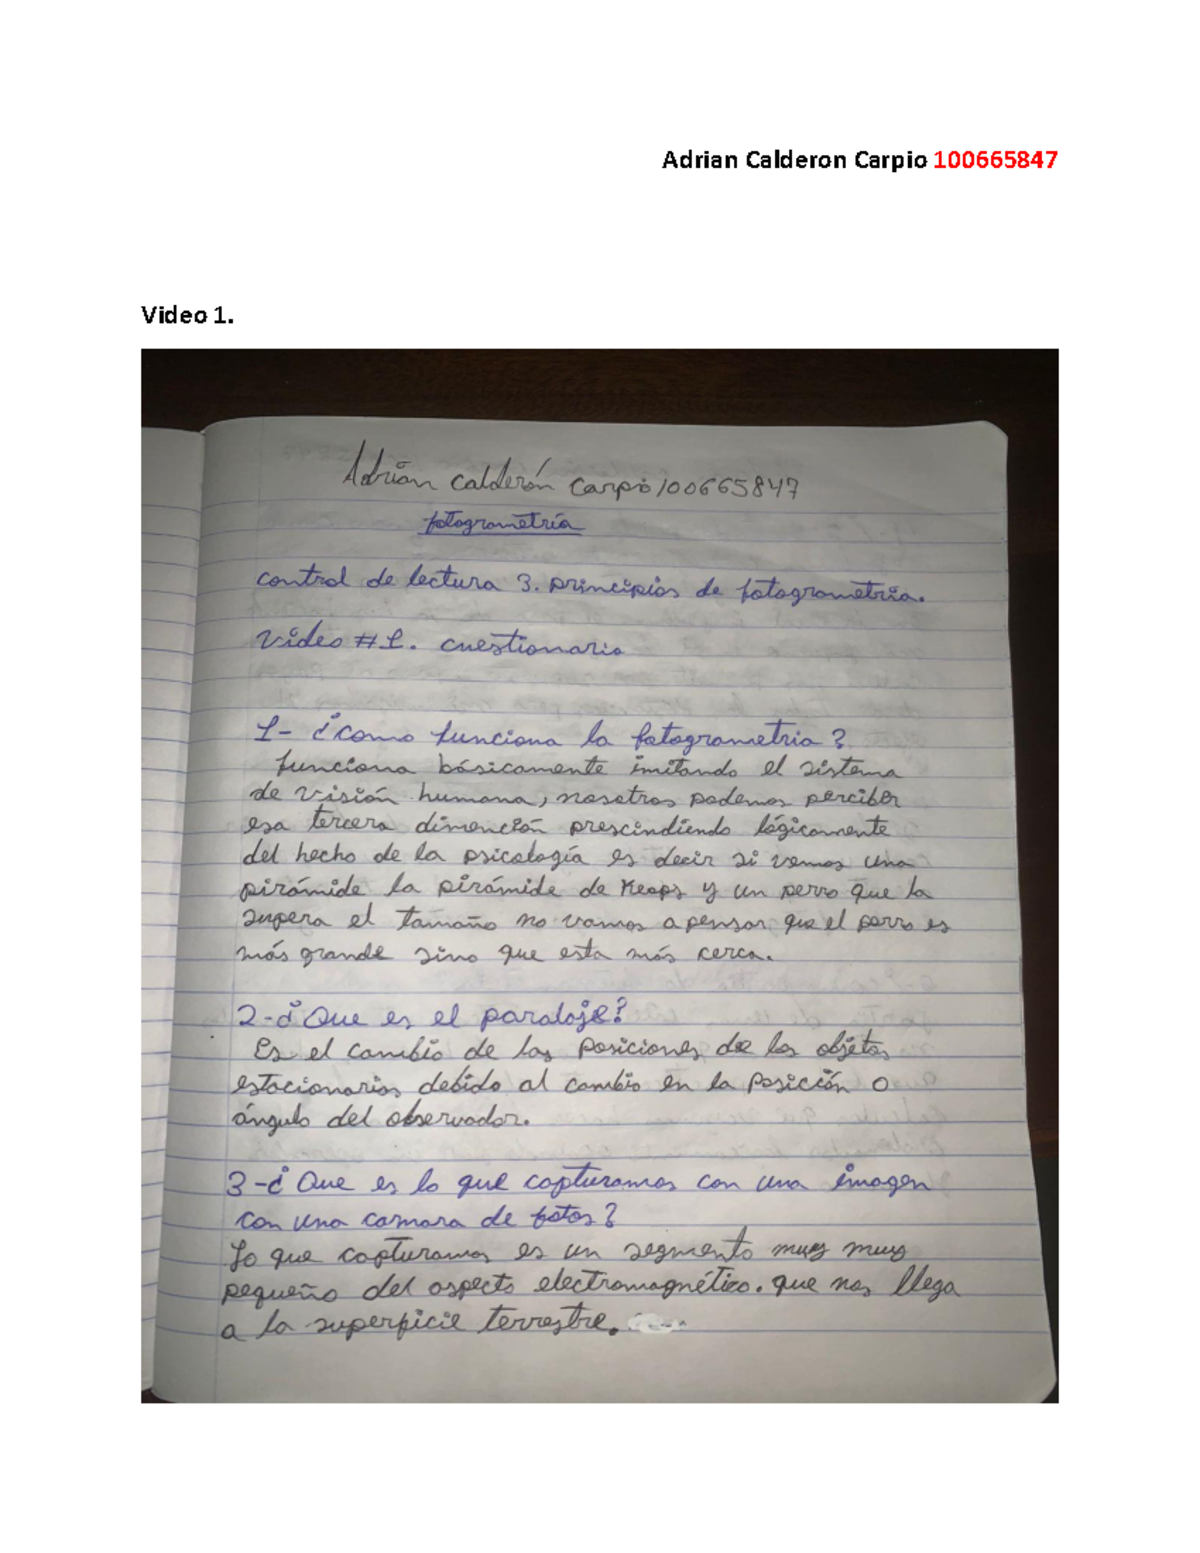 Adrian Calderon Carpio 100665847
Video 1.
Adrián Calderón Carpio 100665847
fotogrametría
control de lectura 3. principios de fotogrametría.
Video #1. cuestionario
1- ¿como funciona la fotogrametria?
funciona básicamente imitando el sistema
de visión humana, nosotros podemos perciber
esa tercera dimención prescindiendo lógicamente
del hecho de la psicología es decir si vemos una
pirámide la pirámide de Keops y un perro que la
supera el tamaño no vamos a pensar que el perro es
más grande sino que esta más cerca.
2-¿Que es el paralaje?
Es el cambio de las posiciones de los objetos
estacionarios debido al cambio en la posición o
ángulo del observador.
3-¿Que es lo que capturamos con una imagen
con una camara de fotos?
Lo que capturamos es un segmento muy muy
pequeño del aspecto electromagnético. que nos llega
a la superficie terrestre.